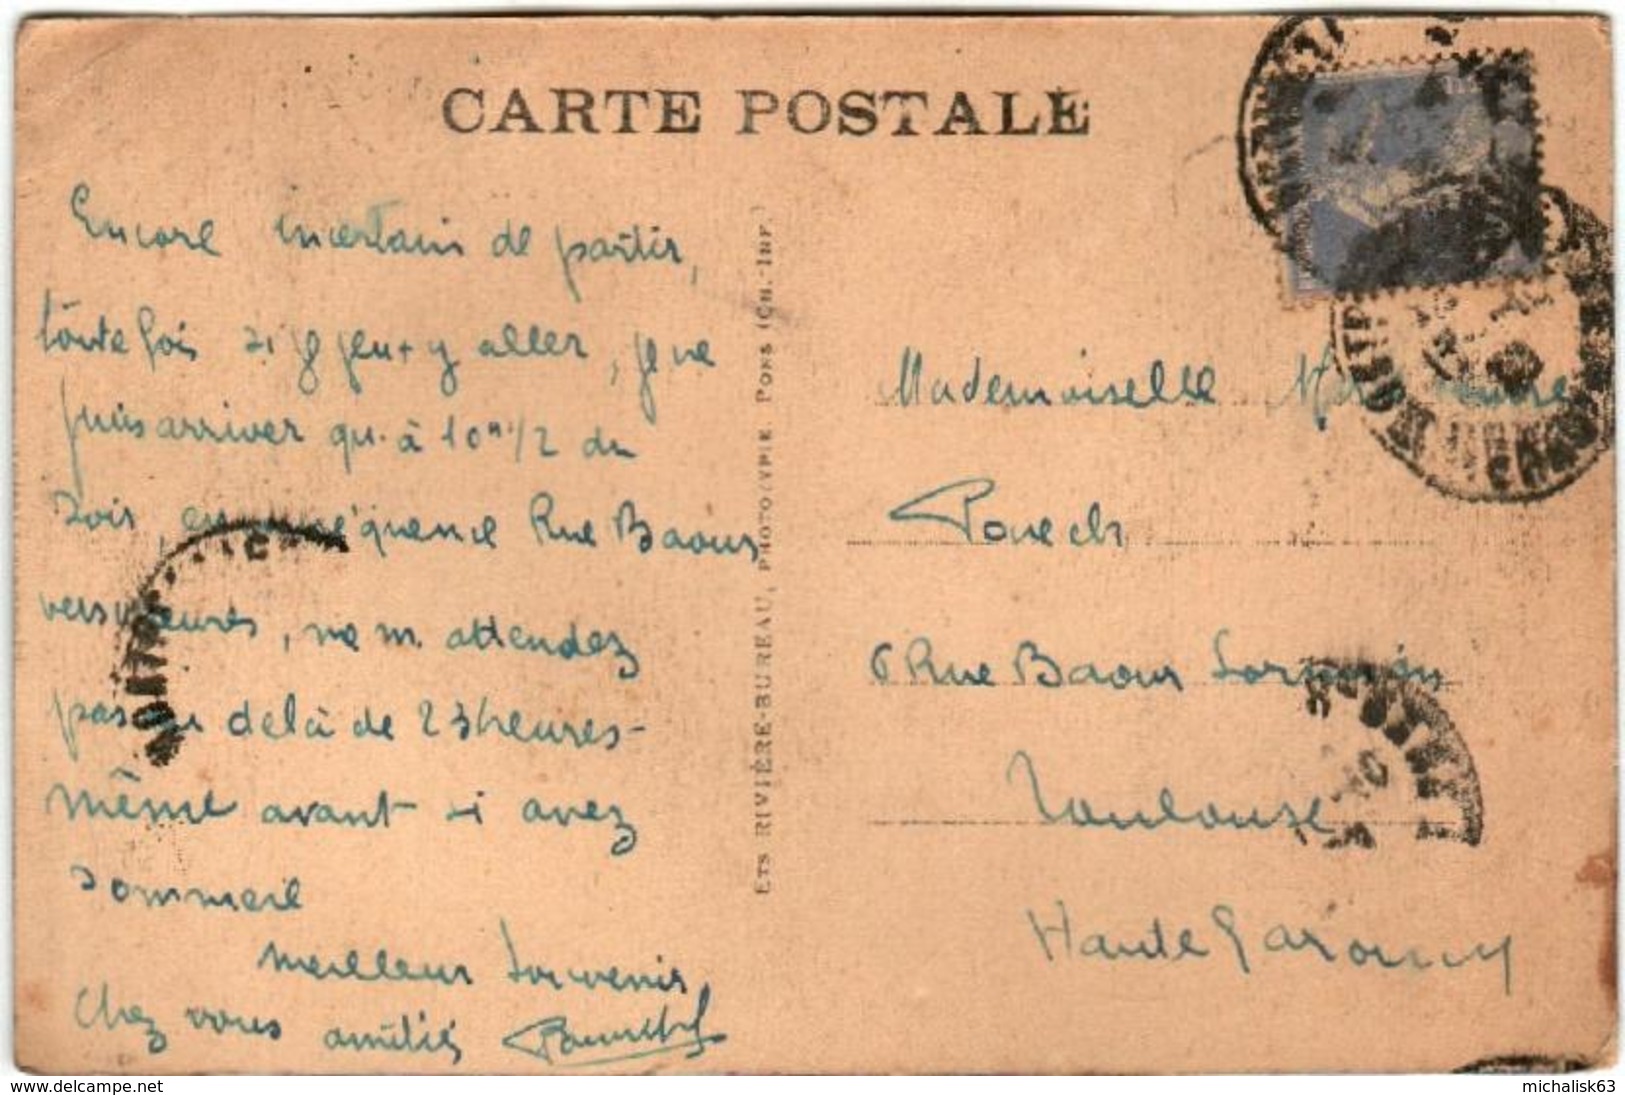 CARTE POSTALE
Encore incertain de partir,
toute fois si je peux y aller, je ne
puis arriver qu'à 10h 1/2 du
soir, en conséquence Rue Baour
vers heures, ne m'attendez
pas au delà de 23 heures -
même avant si avez
sommeil
Meilleur Souvenir
Chez vous amitiés
ETS RIVIÈRE-BUREAU, PHOTOTYPIE PONS (CH.-INF.)
Mademoiselle
Pouech
6 Rue Baour Lormian
Toulouse
Haute Garonne
www.delcampe.net
michalisk63